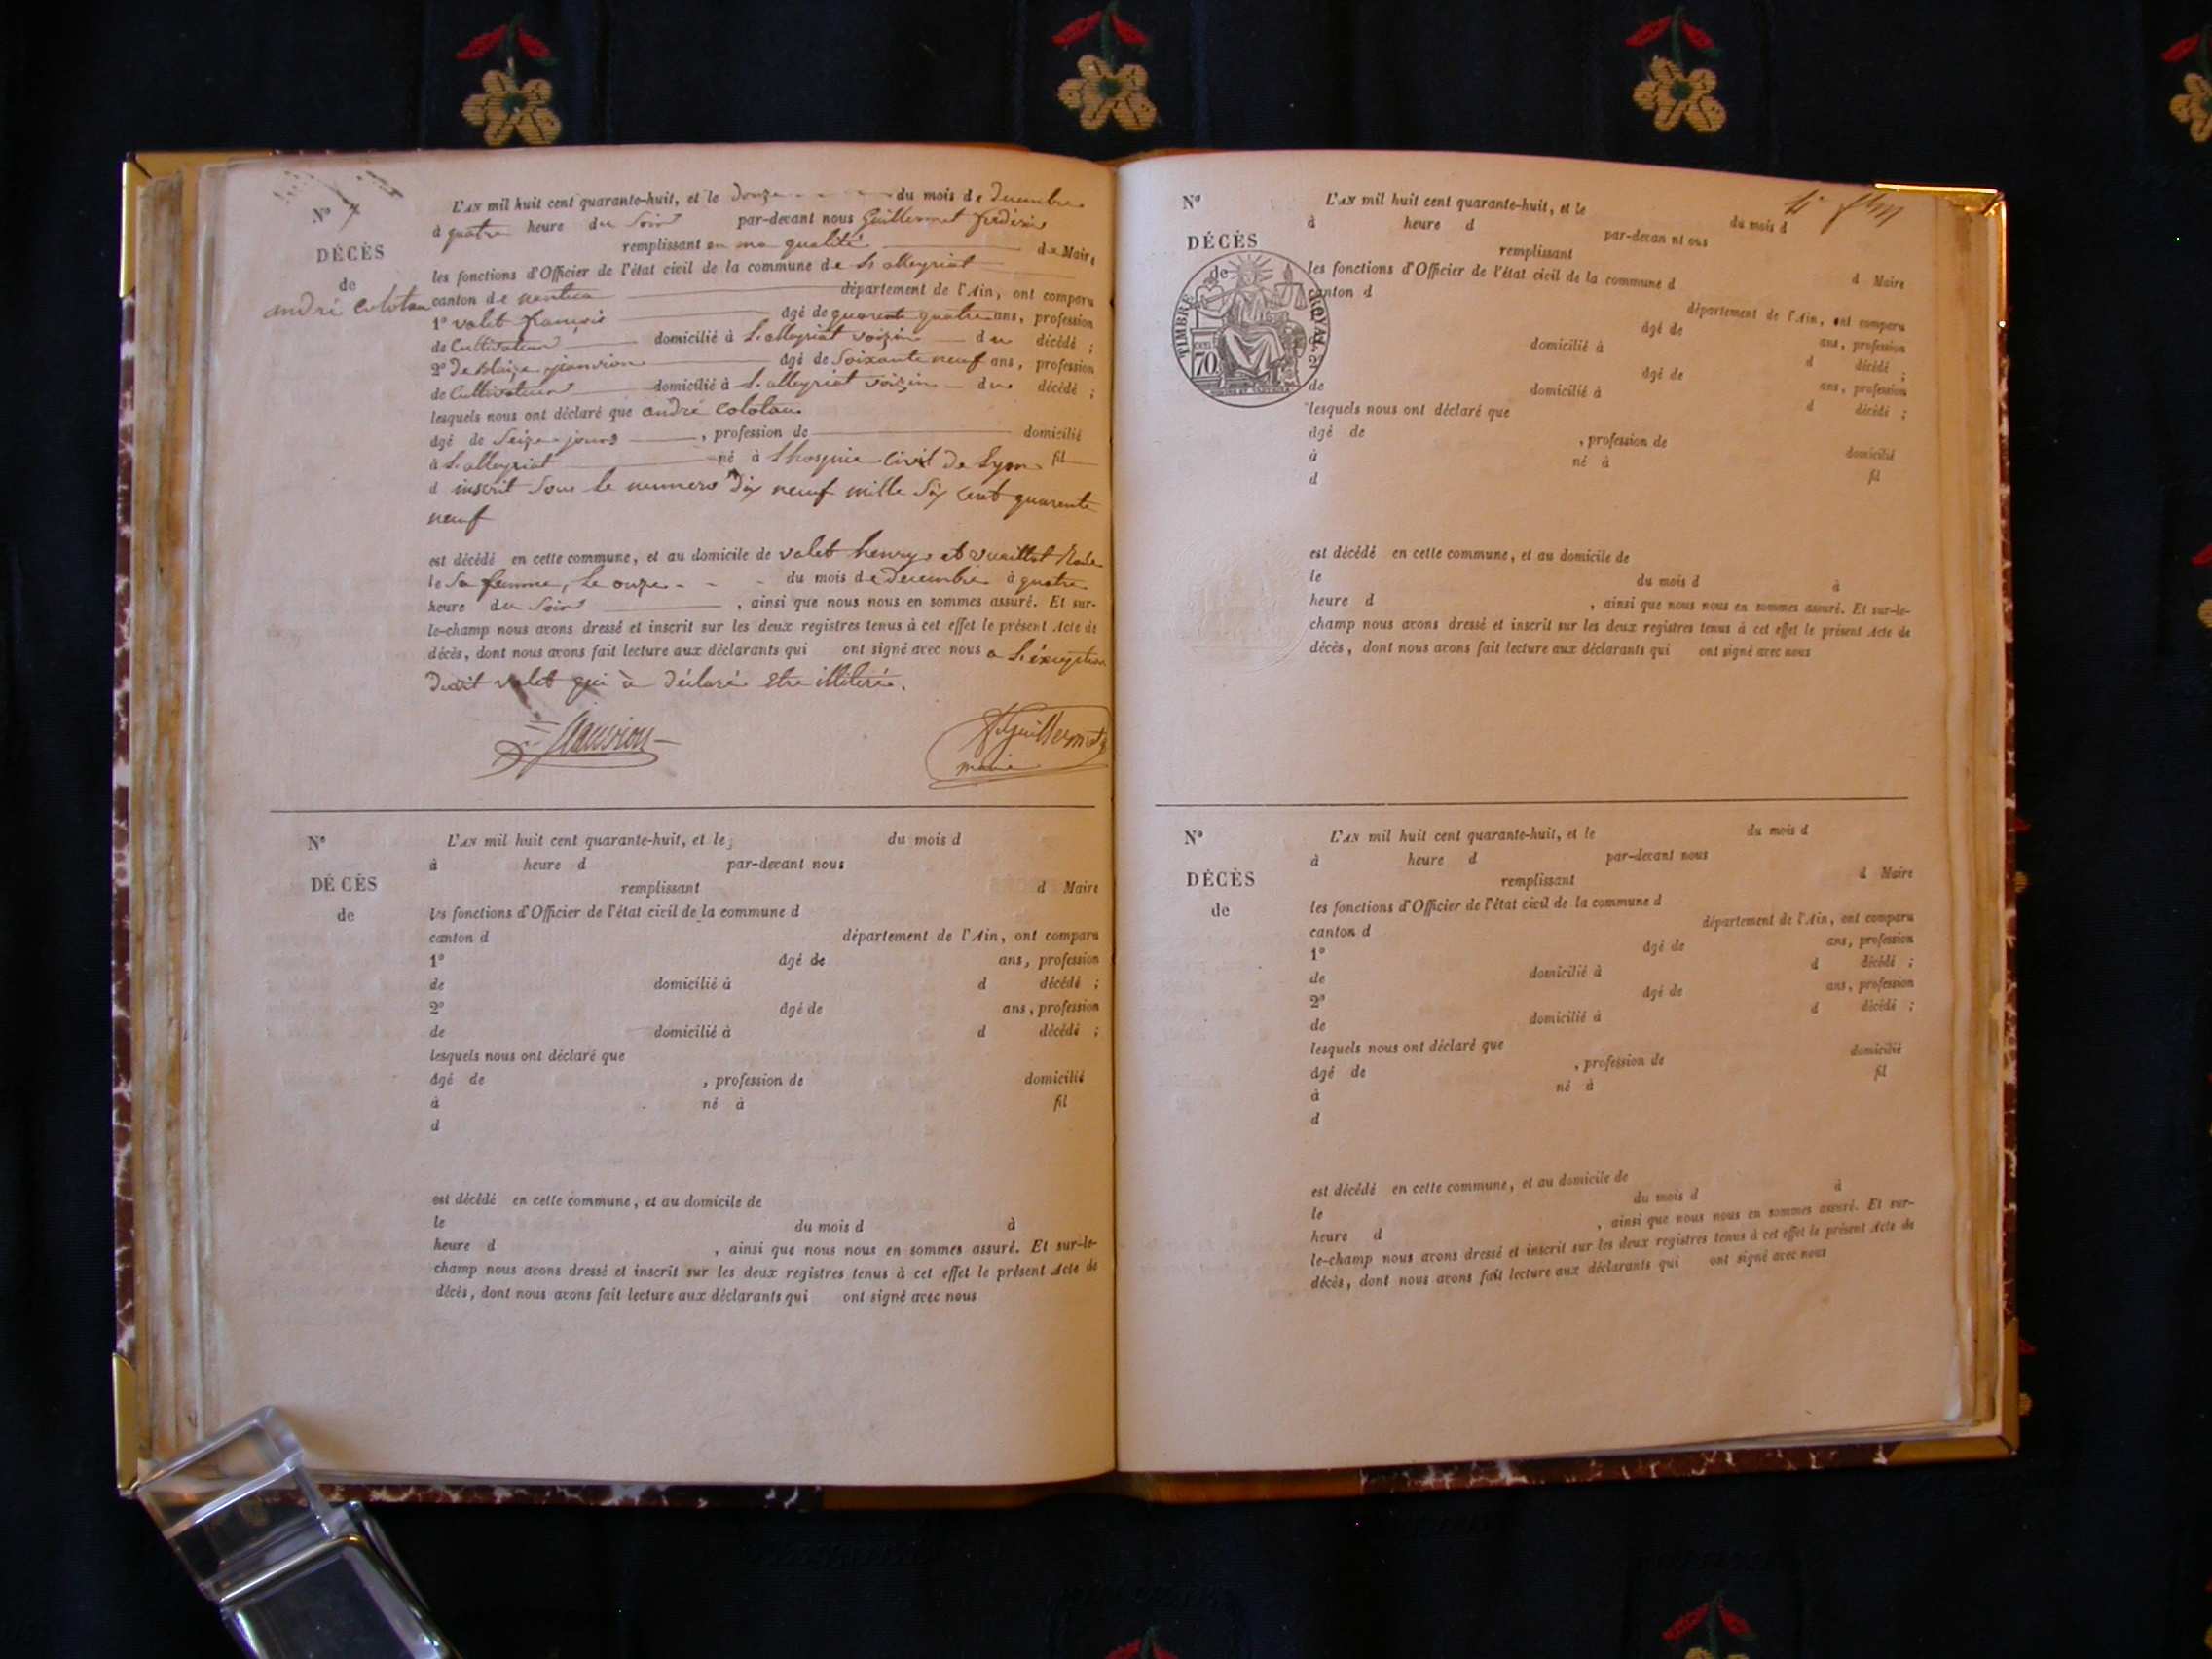 N° 7
DÉCÈS
de
andré Colotan
L'AN mil huit cent quarante-huit, et le douze du mois de decembre
à quatre heure du Soir par-devant nous Guillermet frédéric
remplissant en ma qualité de Maire
les fonctions d'Officier de l'état civil de la commune de St alleyriat
canton de nantua département de l'Ain, ont comparu
1° valet françois âgé de quarente quatre ans, profession
de Cultivateur domicilié à St alleyriat voizin du décédé ;
2° De Blaize âgé de Soixante neuf ans, profession
de Cultivateur domicilié à St alleyriat voizin du décédé ;
lesquels nous ont déclaré que andré Colotan
âgé de Seize jours , profession de domicilié
à St alleyriat né à Lhospice Civil de Lyon fil
d inscrit Sous le numero Dix neuf mille Six Cent quarente
neuf
est décédé en cette commune, et au domicile de valet henry et vuaillat
le Sa femme, le onze du mois de decembre à quatre
heure du Soir , ainsi que nous nous en sommes assuré. Et sur-
le-champ nous avons dressé et inscrit sur les deux registres tenus à cet effet le présent Acte de
décès, dont nous avons fait lecture aux déclarants qui ont signé avec nous a L'éxception
dudit valet qui à déclaré Etre illiteré.
Guillermet
maire
N°
DÉCÈS
de
L'AN mil huit cent quarante-huit, et le du mois d
à heure d par-devant nous
remplissant d Maire
les fonctions d'Officier de l'état civil de la commune d
canton d département de l'Ain, ont comparu
1° âgé de ans, profession
de domicilié à d décédé ;
2° âgé de ans, profession
de domicilié à d décédé ;
lesquels nous ont déclaré que
âgé de , profession de domicilié
à né à fil
d
est décédé en cette commune, et au domicile de
le du mois d à
heure d , ainsi que nous nous en sommes assuré. Et sur-le-
champ nous avons dressé et inscrit sur les deux registres tenus à cet effet le présent Acte de
décès, dont nous avons fait lecture aux déclarants qui ont signé avec nous
N°
DÉCÈS
de
TIMBRE ROYAL
cen
70
L'AN mil huit cent quarante-huit, et le du mois d
à heure d par-devan nt ous
remplissant d Maire
les fonctions d'Officier de l'état civil de la commune d
canton d département de l'Ain, ont comparu
âgé de ans, profession
domicilié à d décédé ;
âgé de ans, profession
de domicilié à d décédé ;
lesquels nous ont déclaré que
âgé de , profession de domicilié
à né à fil
d
est décédé en cette commune, et au domicile de
le du mois d à
heure d , ainsi que nous nous en sommes assuré. Et sur-le-
champ nous avons dressé et inscrit sur les deux registres tenus à cet effet le présent Acte de
décès, dont nous avons fait lecture aux déclarants qui ont signé avec nous
N°
DÉCÈS
de
L'AN mil huit cent quarante-huit, et le du mois d
à heure d par-devant nous
remplissant d Maire
les fonctions d'Officier de l'état civil de la commune d
canton d département de l'Ain, ont comparu
1° âgé de ans, profession
de domicilié à d décédé ;
2° âgé de ans, profession
de domicilié à d décédé ;
lesquels nous ont déclaré que
âgé de , profession de domicilié
à né à fil
d
est décédé en cette commune, et au domicile de
le du mois d à
heure d , ainsi que nous nous en sommes assuré. Et sur-
le-champ nous avons dressé et inscrit sur les deux registres tenus à cet effet le présent Acte de
décès, dont nous avons fait lecture aux déclarants qui ont signé avec nous